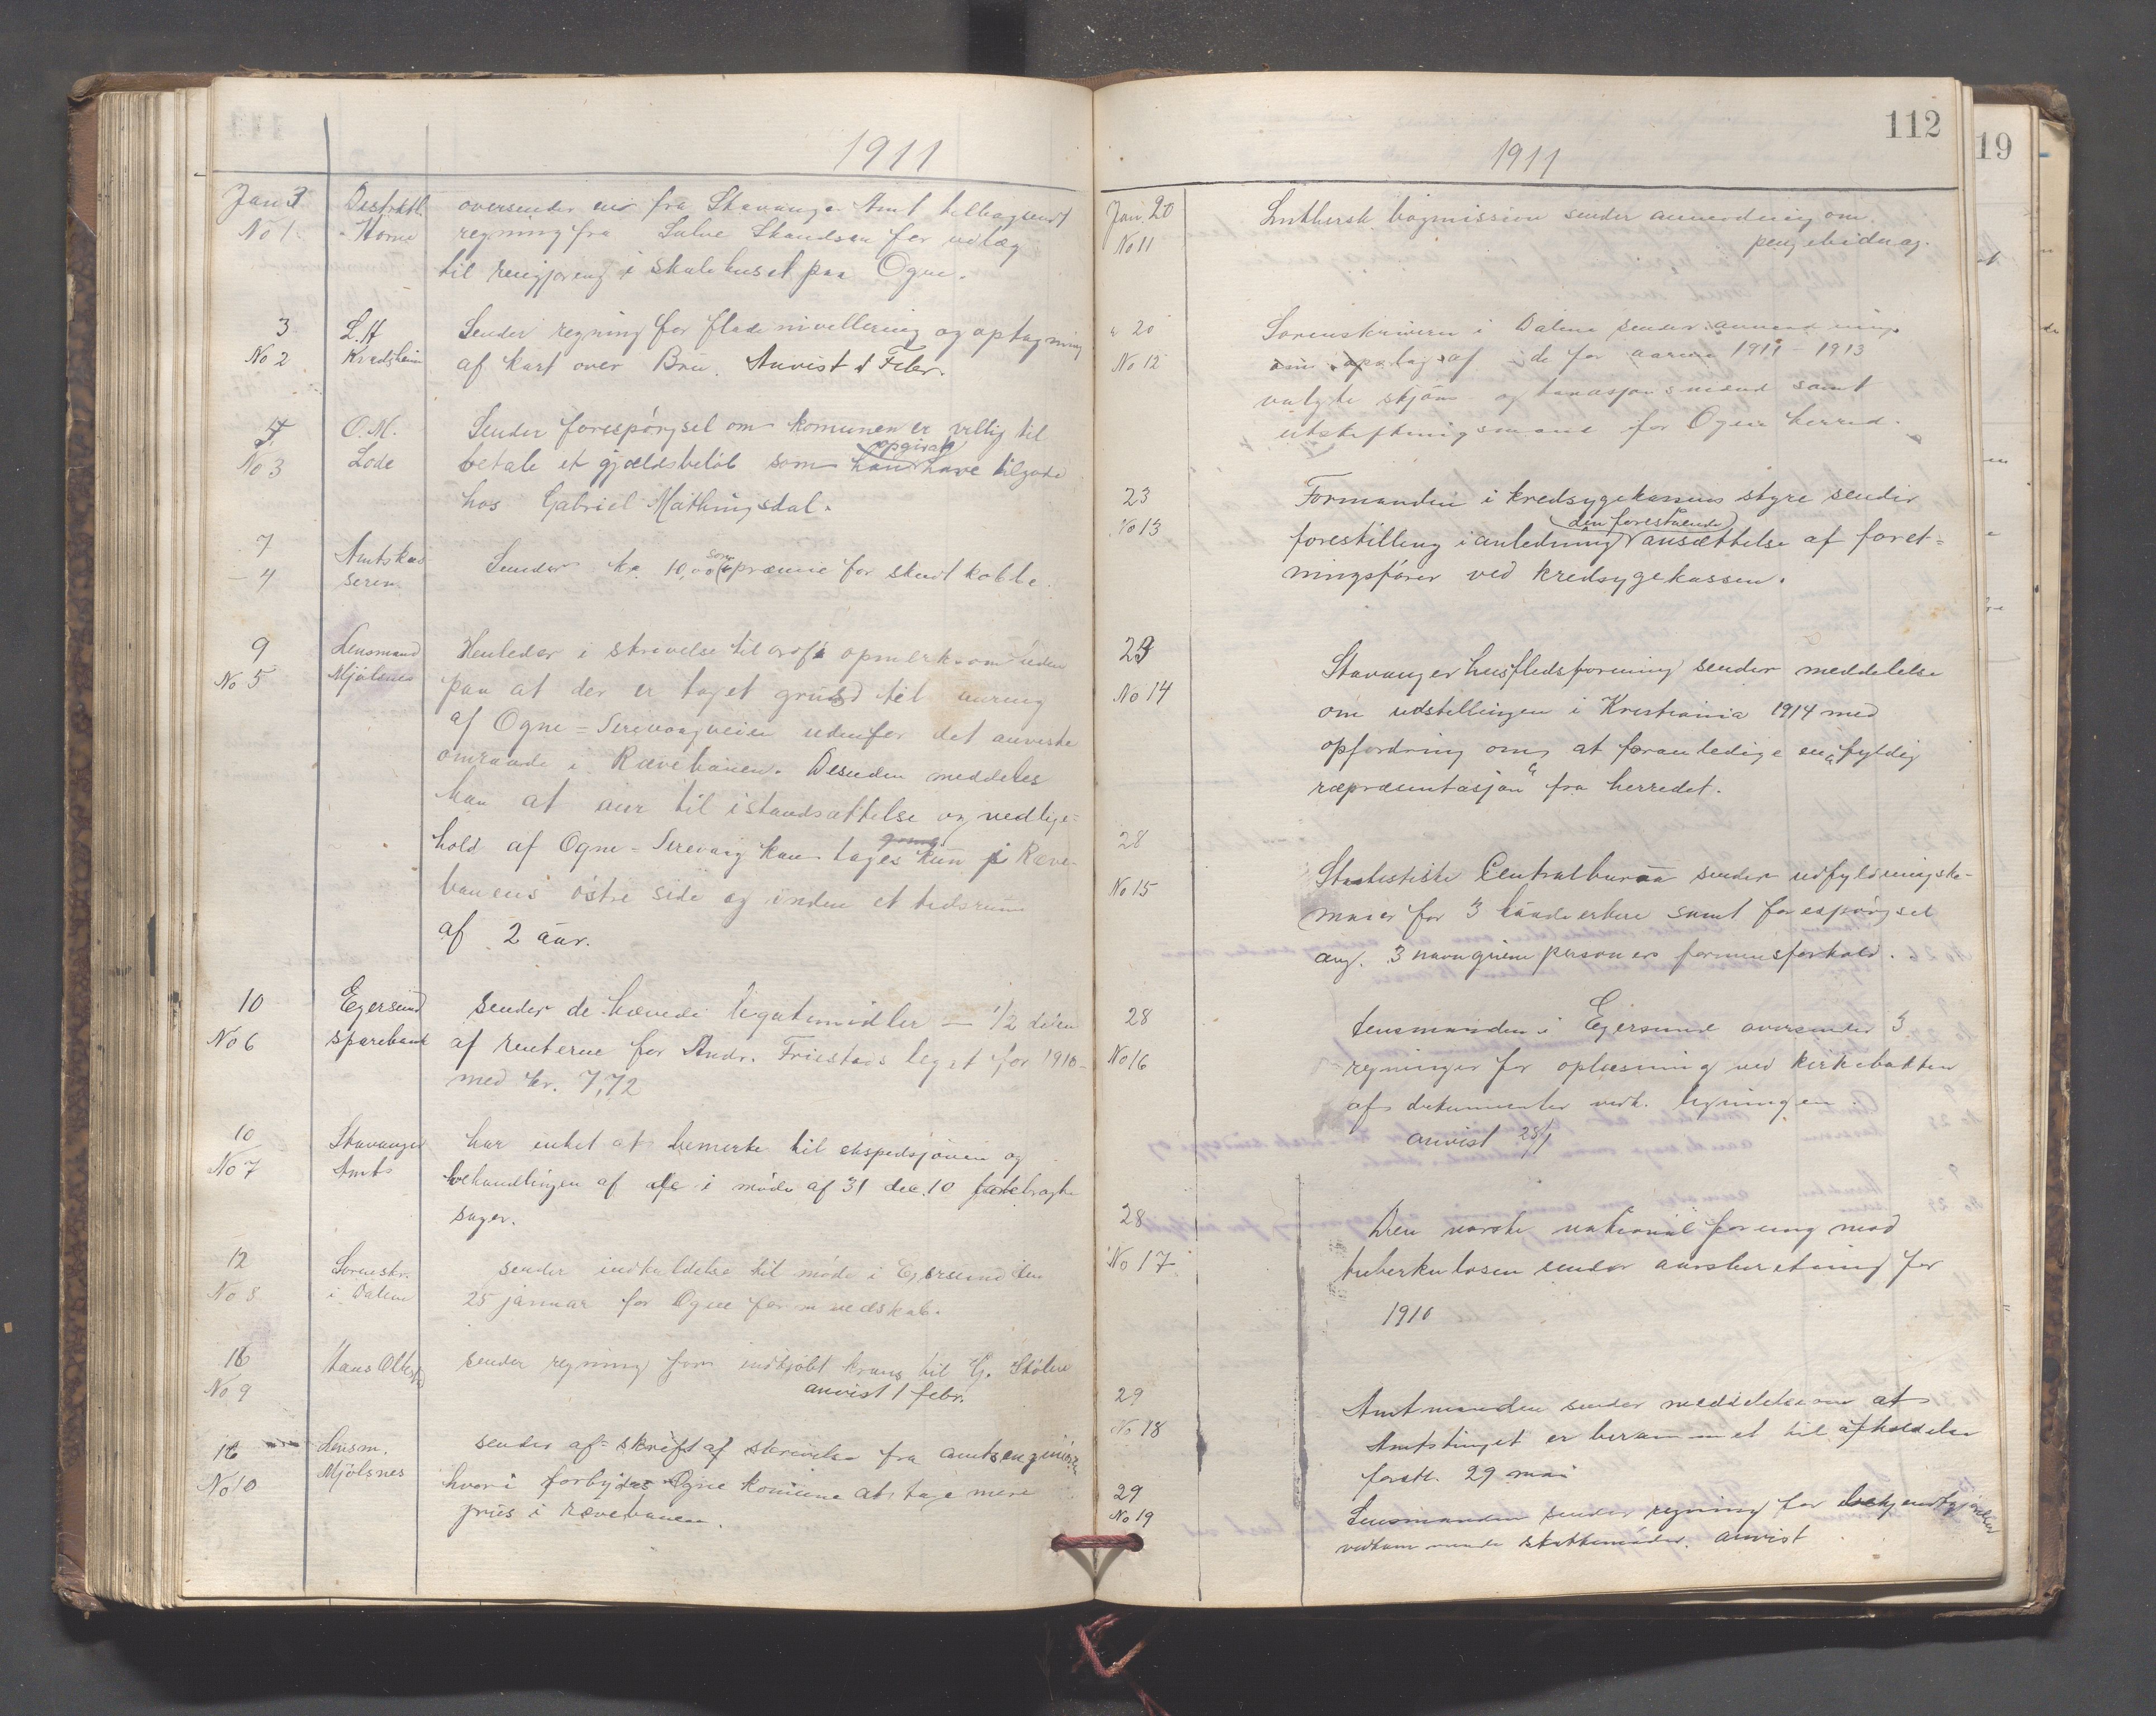 1911
Jan 3
No 1
Distriktl.
Horne
oversender en fra Stavanger Amt tilbagsendt
regning fra Salve Skandsen for udlæg
til rengjøring i skolehuset paa Ogne.
3
No 2
L. H
Kvadsheim
Sender regning for flade nivellering og optagning
af kart over Bru. Anvist 1 Febr.
7
No 3
O. M.
Lode
Sender forespørgsel om komunen er villig til
betale et gjældsbeløb som opgivat have tilgode
hos Gabriel Mathingsdal.
7
4
Amtskas
seren
Sender kr. 10,00 som præmie for skudt kobbe.
9
No 5
Lensmand
Mjölsnes
Henleder i skrivelse til ordf. opmerksomheden
paa at der er taget grus til auring
af Ogne=Sirevaagveien udenfor det anviste
omraade i Rævehauen. Desuden meddeles
han at aur til istandsættelse og vedlige=
hold af Ogne=Sirevaag kan tages kun i Ræve-
hauens østre side og inden et tidsrum
af 2 aar.
10
No 6
Egersund
sparebank
sender de hævede legatmidler — 1/2 delen
af renterne for Andr. Friestads legat for 1910-
med kr. 7,72
10
No 7
Stavanger
Amt
har intet at bemerke til ekspedsjonen og
behandlingen af de i møde af 31 dec. 10 behragte
sager.
12
No 8
Sorenskr.
i Dalene
sender indkaldelse til møde i Egersund den
25 januar for Ogne formandskab.
16
No 9
Hans
sender regning for indkjøbt krans til G. Stølen
anvist 1 febr.
16
No 10
Lensm.
Mjölsnes
sender af=skrift af skrivelse fra amtsenginiøren
hvori forbydes Ogne komune at tage mere
grus i rævehauen.
112
1911
Jan. 20
No 11
Luthersk bogmission sender anmodning om
pengebidrag.
" 20
No 12
Sorenskriveren i Dalene sender anmodning
om opslag af de for aarene 1911-1913
valgte skjøns og taxasjonsmænd samt
utskiftningsmænd for Ogne herred.
23
No 13
Formanden i kredsygekassens styre sender
forestilling i anledning den forestaaende ansættelse af foret=
ningsfører ved kredsygekassen.
23
No 14
Stavanger husflidsforening sender meddelelse
om udstillingen i Kristiania 1914 med
opfordring om at foranledige en fyldig
repræsentasjon fra herredet.
28
No 15
Statistiske Centralburaa sender udfyldningske-
maer for 3 samt forespørgsel
ang. 3 navngivne personers formuesforhold.
28
No 16
Lensmanden i Egersund oversender 3
regninger for oplæsning ved kirkebakken
af dokumenter vedk. ligningen.
anvist 28/1
28
No 17
Den norske nationalforening mod
tuberkulosen sender aarsberetning for
1910
29
No 18
Amtmanden sender meddelelse om at
Amtstinget er berammet til afholdelse
førstk. 29 mai
29
No 19
Lensmanden sender regning for bekjendtgjørelser
vedkommende skattemøder. anvist
19